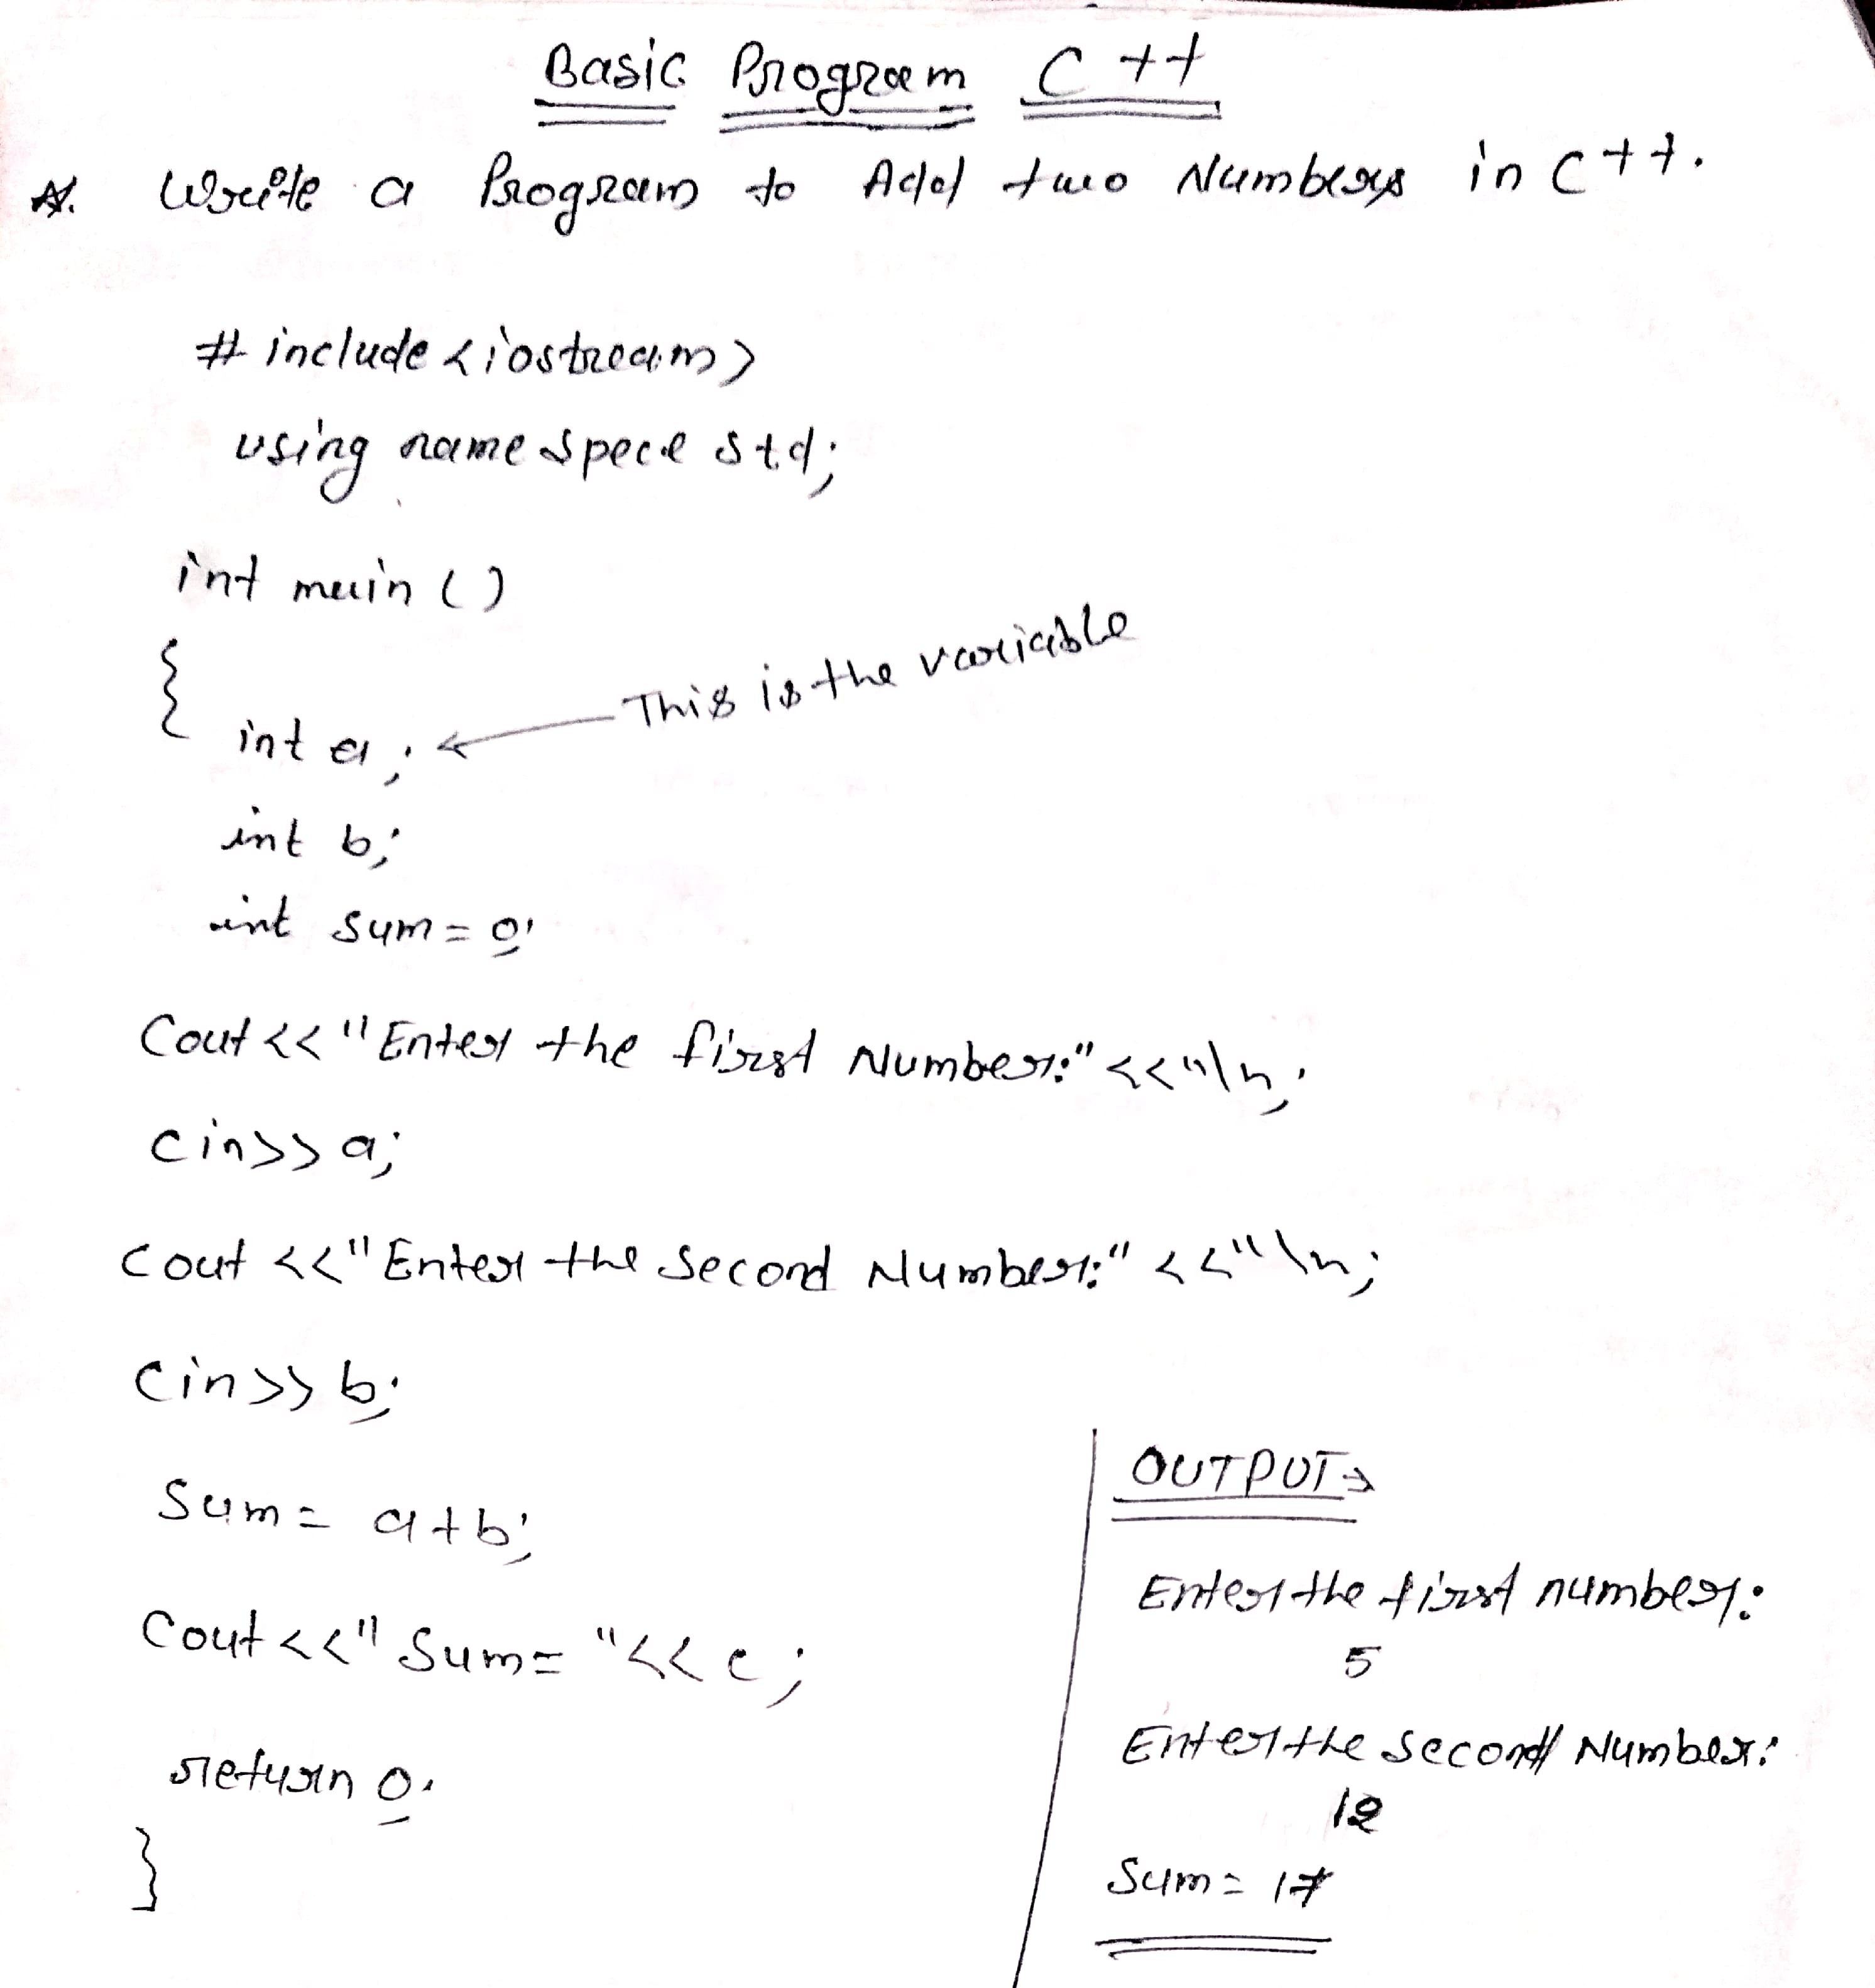 Basic Program C++
A. Write a Program to Add two Numbers in C++.
# include <iostream>
using name spece std;
int main ()
{
This is the variable
int a;
int b;
int sum = 0;
Cout << "Enter the first Number:" << "\n;
Cin >> a;
Cout << "Enter the Second Number:" << "\n;
Cin >> b;
Sum = a+b;
Cout << " Sum = " << c;
return 0;
}
OUTPUT→
Enter the first number:
5
Enter the Second Number:
12
Sum = 17